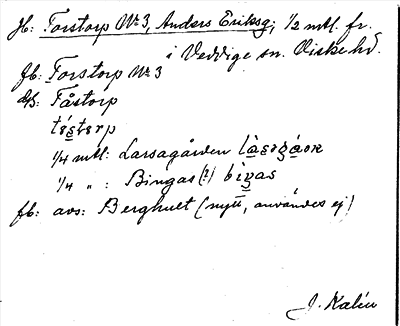 Jb: Torstorp Nr 3, Anders Erikssg; 1/2 mtl. fr.
i Veddige sn. Viske hd.
fb: Torstorp Nr 3
db: Tåstorp
1/4 mtl: Larsagården
1/4 „ : Bingas (?) bìŋas
fb: avs: Berghult (nytt, användes ej)
J. Kalén